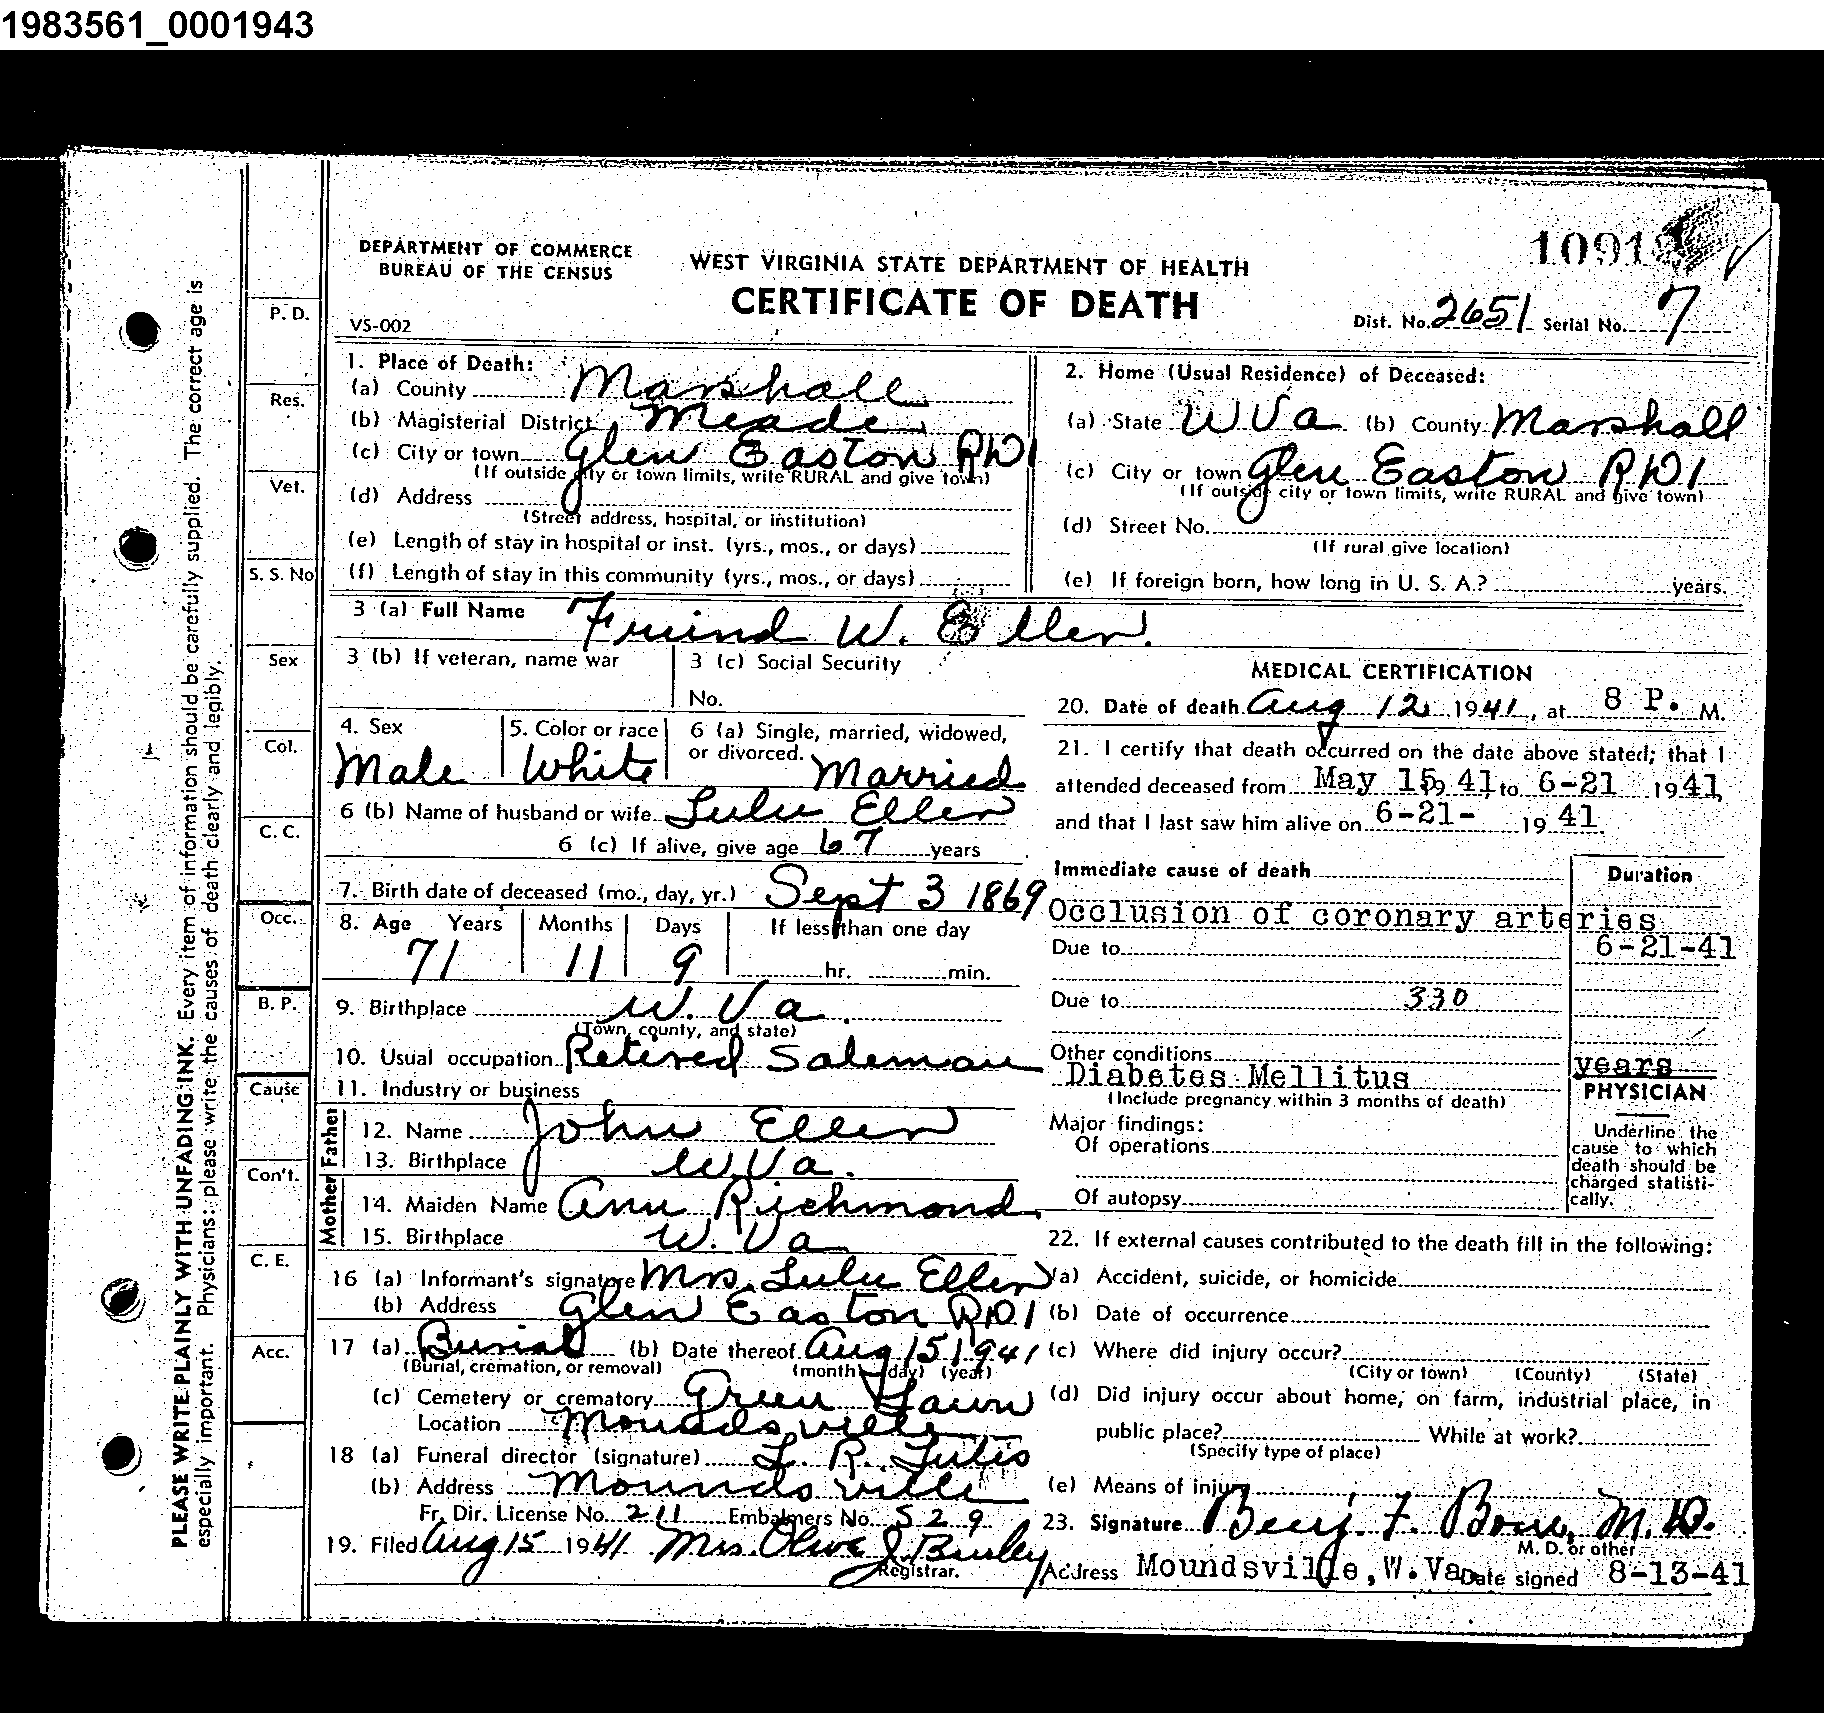 1983561_0001943
DEPARTMENT OF COMMERCE
BUREAU OF THE CENSUS
WEST VIRGINIA STATE DEPARTMENT OF HEALTH
CERTIFICATE OF DEATH
VS-002
Dist. No. 2651 Serial No. 7
1. Place of Death:
(a) County Marshall
(b) Magisterial District Meade
(c) City or town Glen Easton RD1
(If outside city or town limits, write RURAL and give town)
(d) Address
(Street address, hospital, or institution)
(e) Length of stay in hospital or inst. (yrs., mos., or days)
(f) Length of stay in this community (yrs., mos., or days)
2. Home (Usual Residence) of Deceased:
(a) State W Va (b) County Marshall
(c) City or town Glen Easton RD1
(If outside city or town limits, write RURAL and give town)
(d) Street No.
(If rural give location)
(e) If foreign born, how long in U. S. A.? years.
3 (a) Full Name Friend W. Ellen.
3 (b) If veteran, name war
3 (c) Social Security
No.
4. Sex
Male
5. Color or race
White
6 (a) Single, married, widowed,
or divorced. Married
6 (b) Name of husband or wife Lulu Ellen
6 (c) If alive, give age 67 years
7. Birth date of deceased (mo., day, yr.) Sept 3 1869
8. Age Years Months Days If less than one day
71 11 9 hr. min.
9. Birthplace W. Va.
(Town, county, and state)
10. Usual occupation Retired Saleman
11. Industry or business
Father
12. Name John Ellen
13. Birthplace W.Va.
Mother
14. Maiden Name Ann Richmond
15. Birthplace W. Va
16 (a) Informant's signature Mrs. Lulu Ellen
(b) Address Glen Easton RD1
17 (a) Burial (b) Date thereof Aug 15 1941
(Burial, cremation, or removal) (month) (day) (year)
(c) Cemetery or crematory Green Lawn
Location Moundsville
18 (a) Funeral director (signature) L. R.
(b) Address Moundsville
Fr. Dir. License No. 211 Embalmers No. 529
19. Filed Aug 15 1941 Mrs. Olive J.
Registrar.
MEDICAL CERTIFICATION
20. Date of death Aug 12 1941, at 8 P. M.
21. I certify that death occurred on the date above stated; that I
attended deceased from May 15, 41, to 6-21 1941,
and that I last saw him alive on 6-21- 19 41.
Immediate cause of death
Duration
Occlusion of coronary arteries
6-21-41
Due to
Due to 330
Other conditions
years
Diabetes Mellitus
(Include pregnancy within 3 months of death)
Major findings:
Of operations
Of autopsy
PHYSICIAN
Underline the
cause to which
death should be
charged statisti-
cally.
22. If external causes contributed to the death fill in the following:
(a) Accident, suicide, or homicide
(b) Date of occurrence
(c) Where did injury occur?
(City or town) (County) (State)
(d) Did injury occur about home, on farm, industrial place, in
public place? While at work?
(Specify type of place)
(e) Means of injury
23. Signature Benj. F. M.D.
M. D. or other
Address Moundsville, W. Va. Date signed 8-13-41
P. D.
Res.
Vet.
S. S. No
Sex
Col.
C. C.
Occ.
B. P.
Cause
Con't.
C. E.
Acc.
PLEASE WRITE PLAINLY WITH UNFADING INK. Every item of information should be carefully supplied. The correct age is
especially important. Physicians: please write the causes of death clearly and legibly.